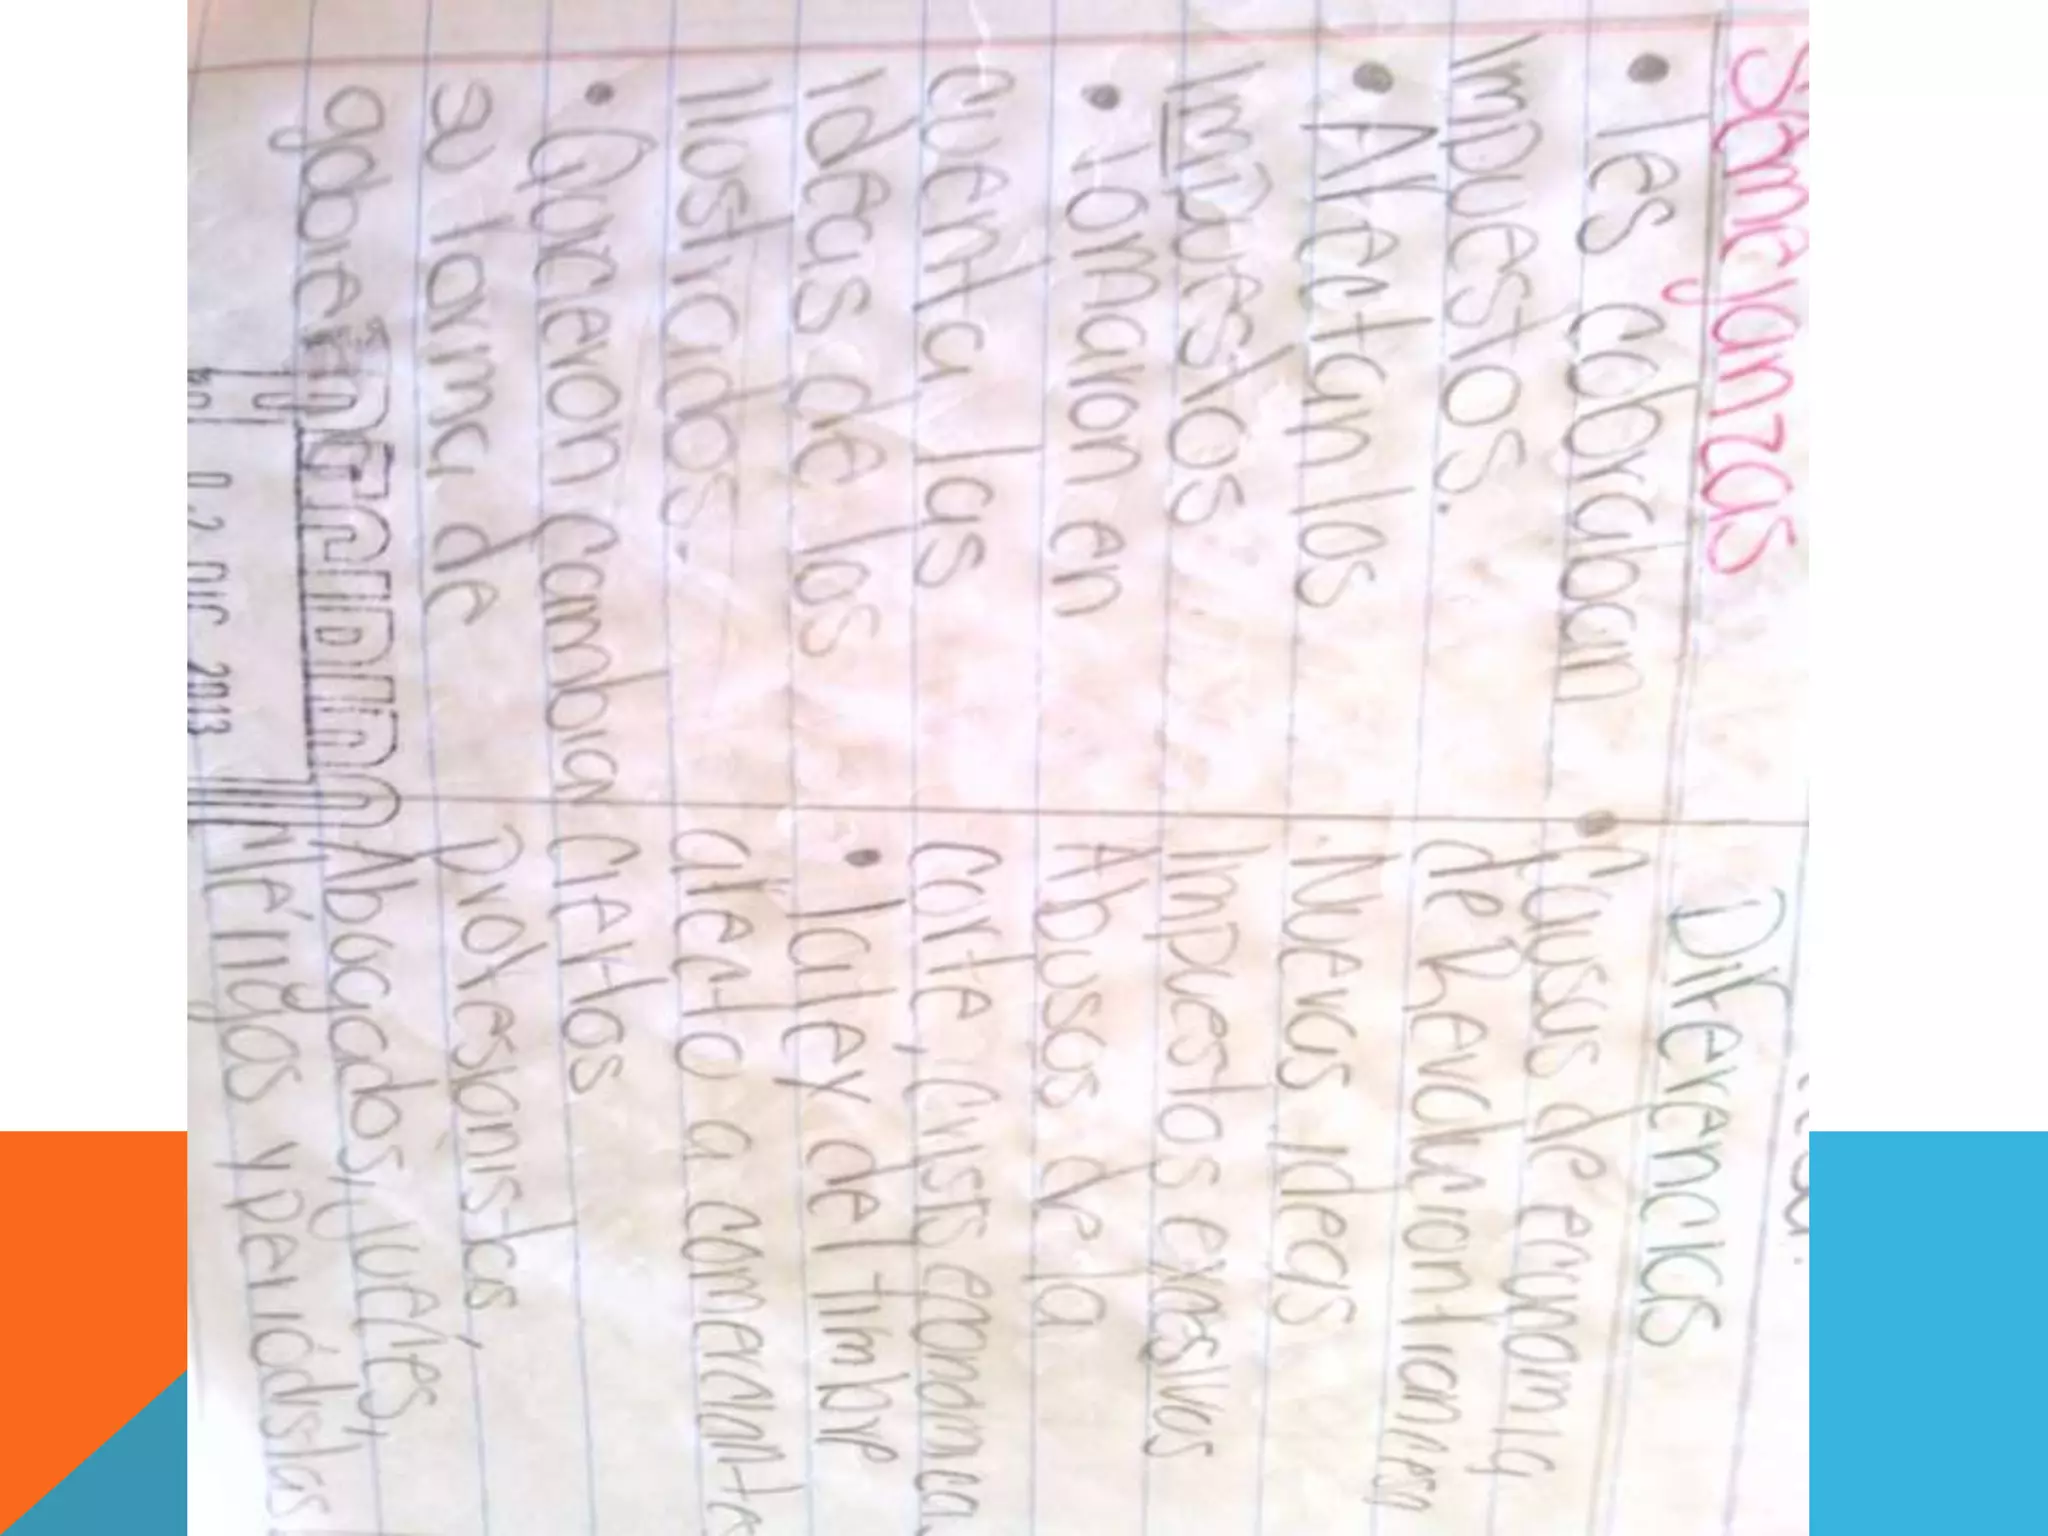 Semejanzas
• les cobraban
impuestos.
• Afectan los
impuestos
• Tomaron en
cuenta las
ideas de los
ilustrados.
• Quicieron cambiar
su forma de
gobierno
RECIBIDO
02 DIC 2013
Diferencias
• Causas de economia
de Revolucion francesa
. Nuevas ideas
Impuestos exasivos
Abusos de la
corte, crisis economica
• la ley del timbre
afecto a comerciante
ciertos
profesionistas,
Abogados, juecíes,
y periodistas